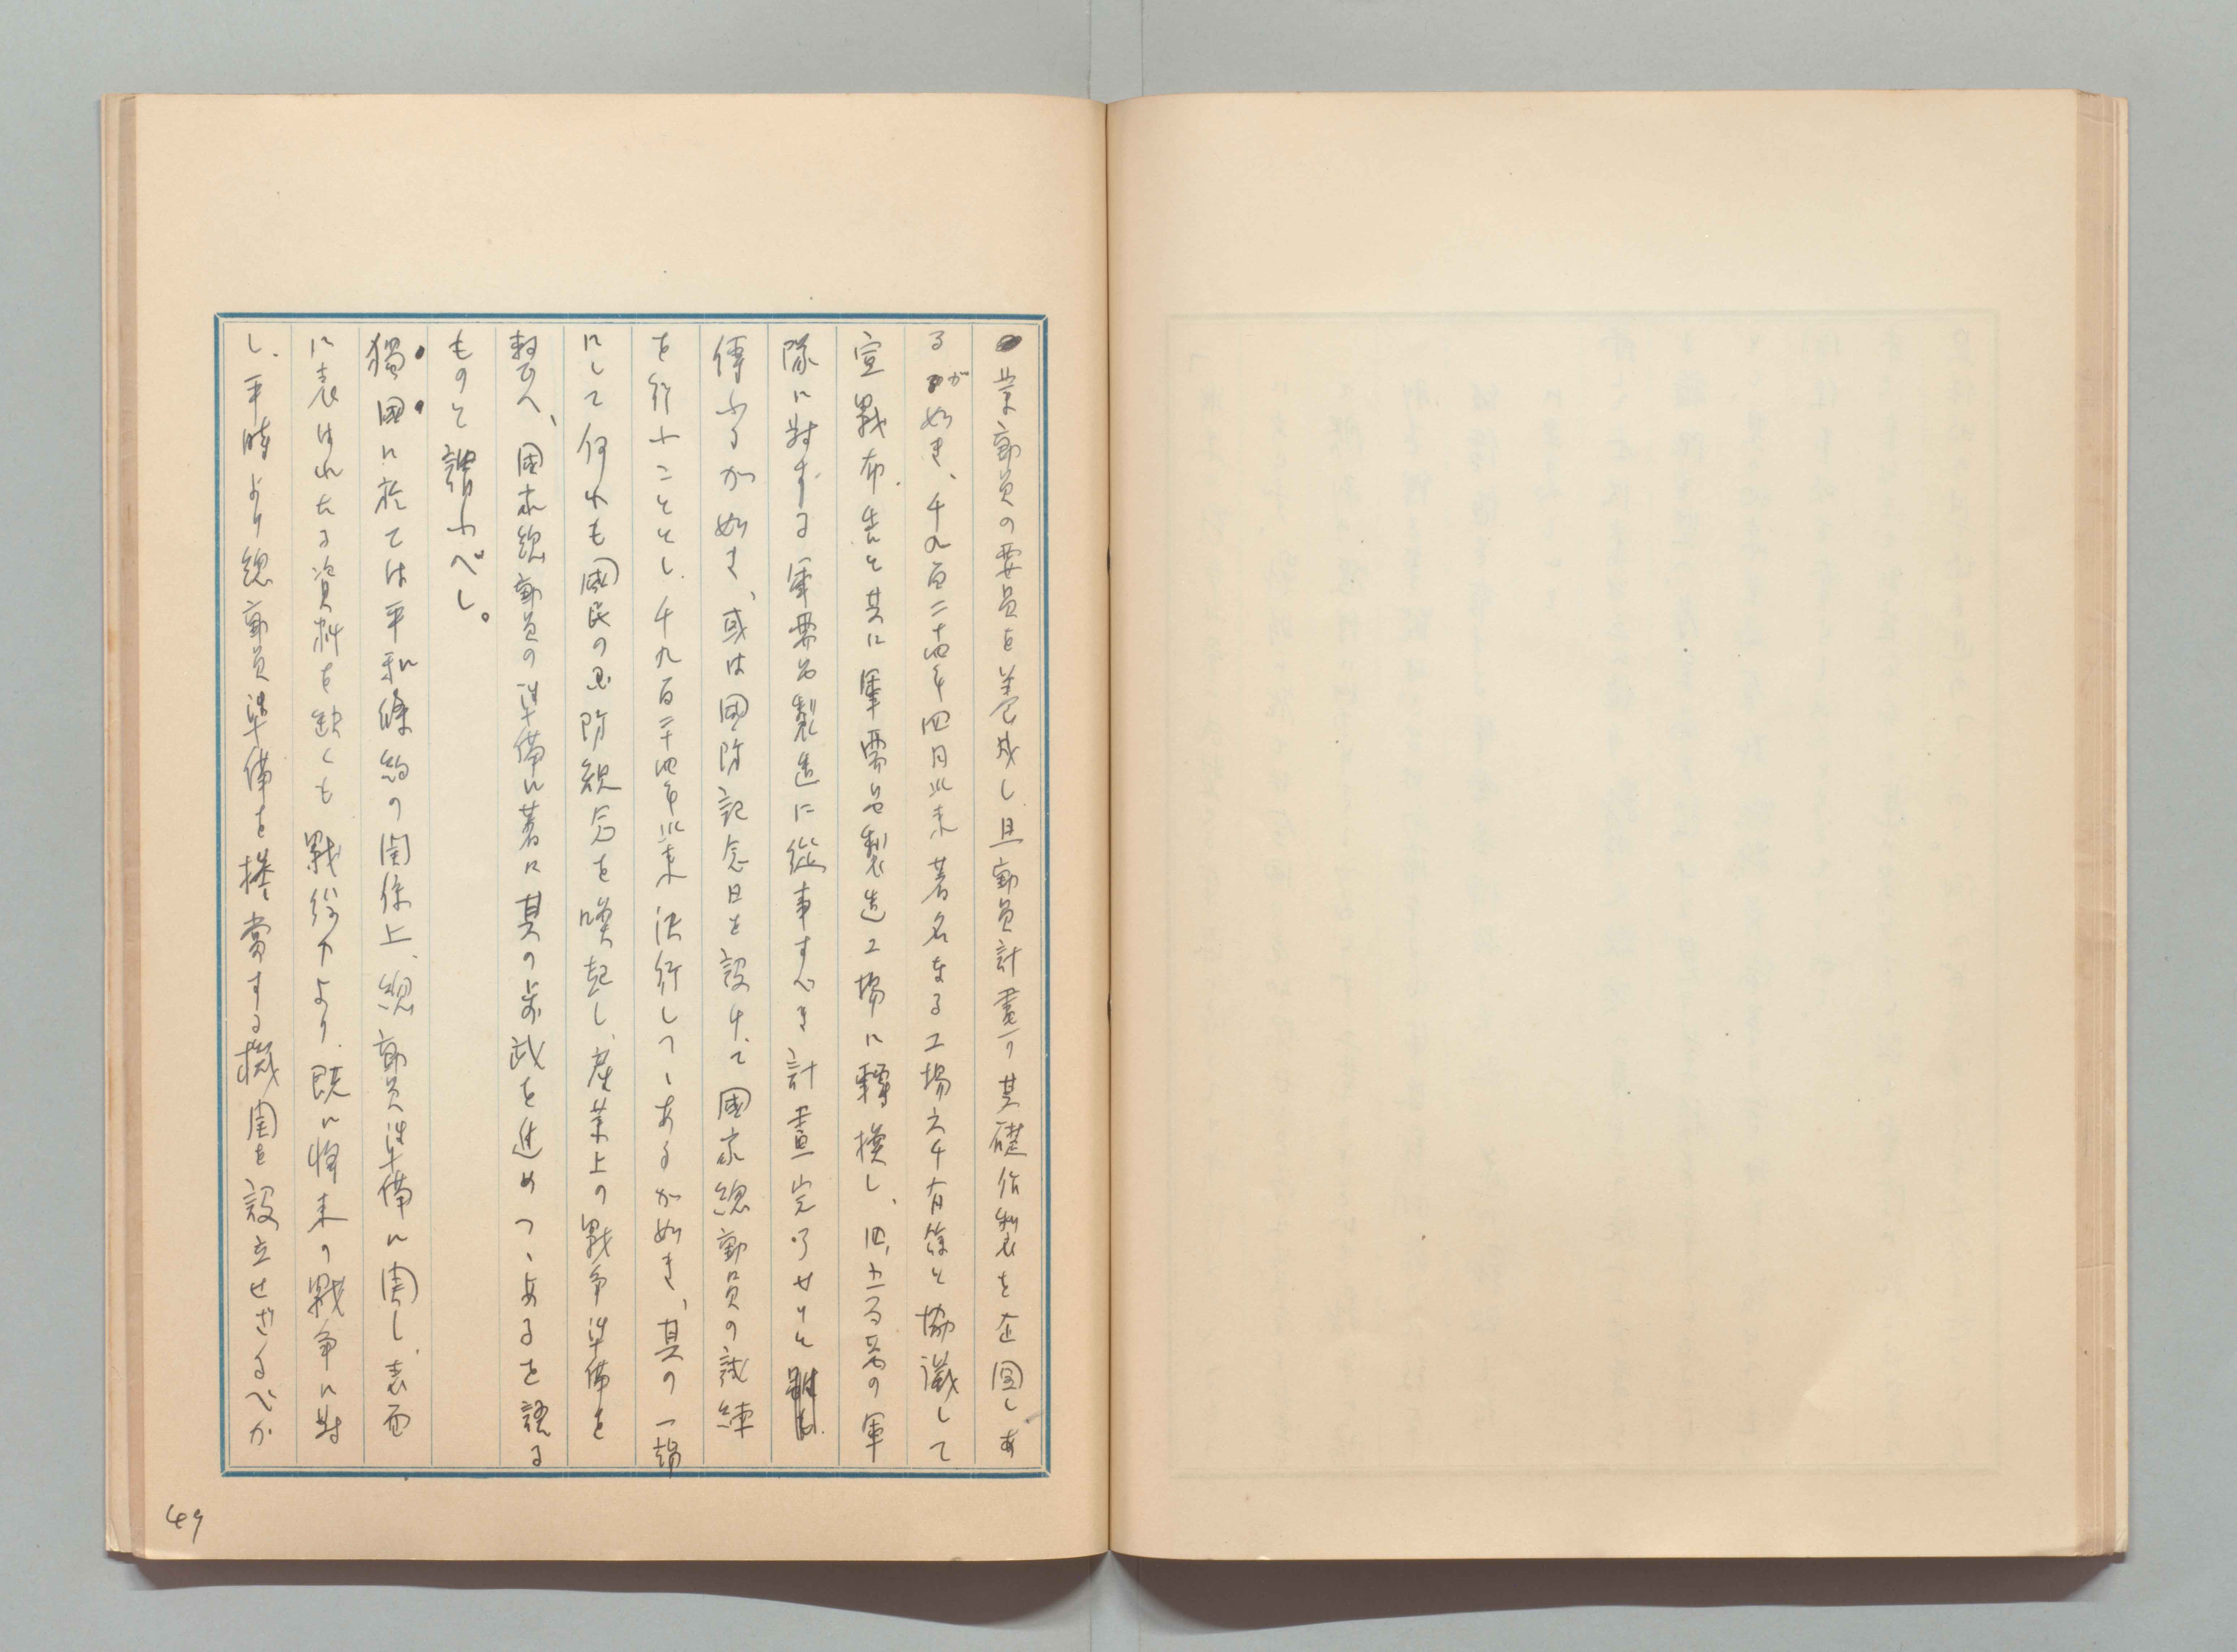 業動員の要員を養成し且動員計畫の基礎作製を企圖しあ
るが如き、千九百二十四年四月以来著名なる工場六千有餘と協議して
宣戰布告と共に軍需品製造工場に轉換し、四、五百萬の軍
隊に對する軍需品製造に從事すべき計畫完了せりと
傳ふるが如き、或は國防記念日を設けて國家總動員の試練
を行ふこととし、千九百二十四年以来決行しつゝあるが如き、其の一端
にして何れも國民の國防観念を喚起し、産業上の戰争準備を
整へ、國家總動員の準備に着に其の歩武を進めつゝあるを語る
ものと謂ふべし。
獨國に於ては平和條約の関係上、總動員準備に関し、表面
に表はれたる資料を缺くも戰後力より、既に將来の戰争に對
し、平時より總動員準備を擔當する機関を設立せざるべか
49